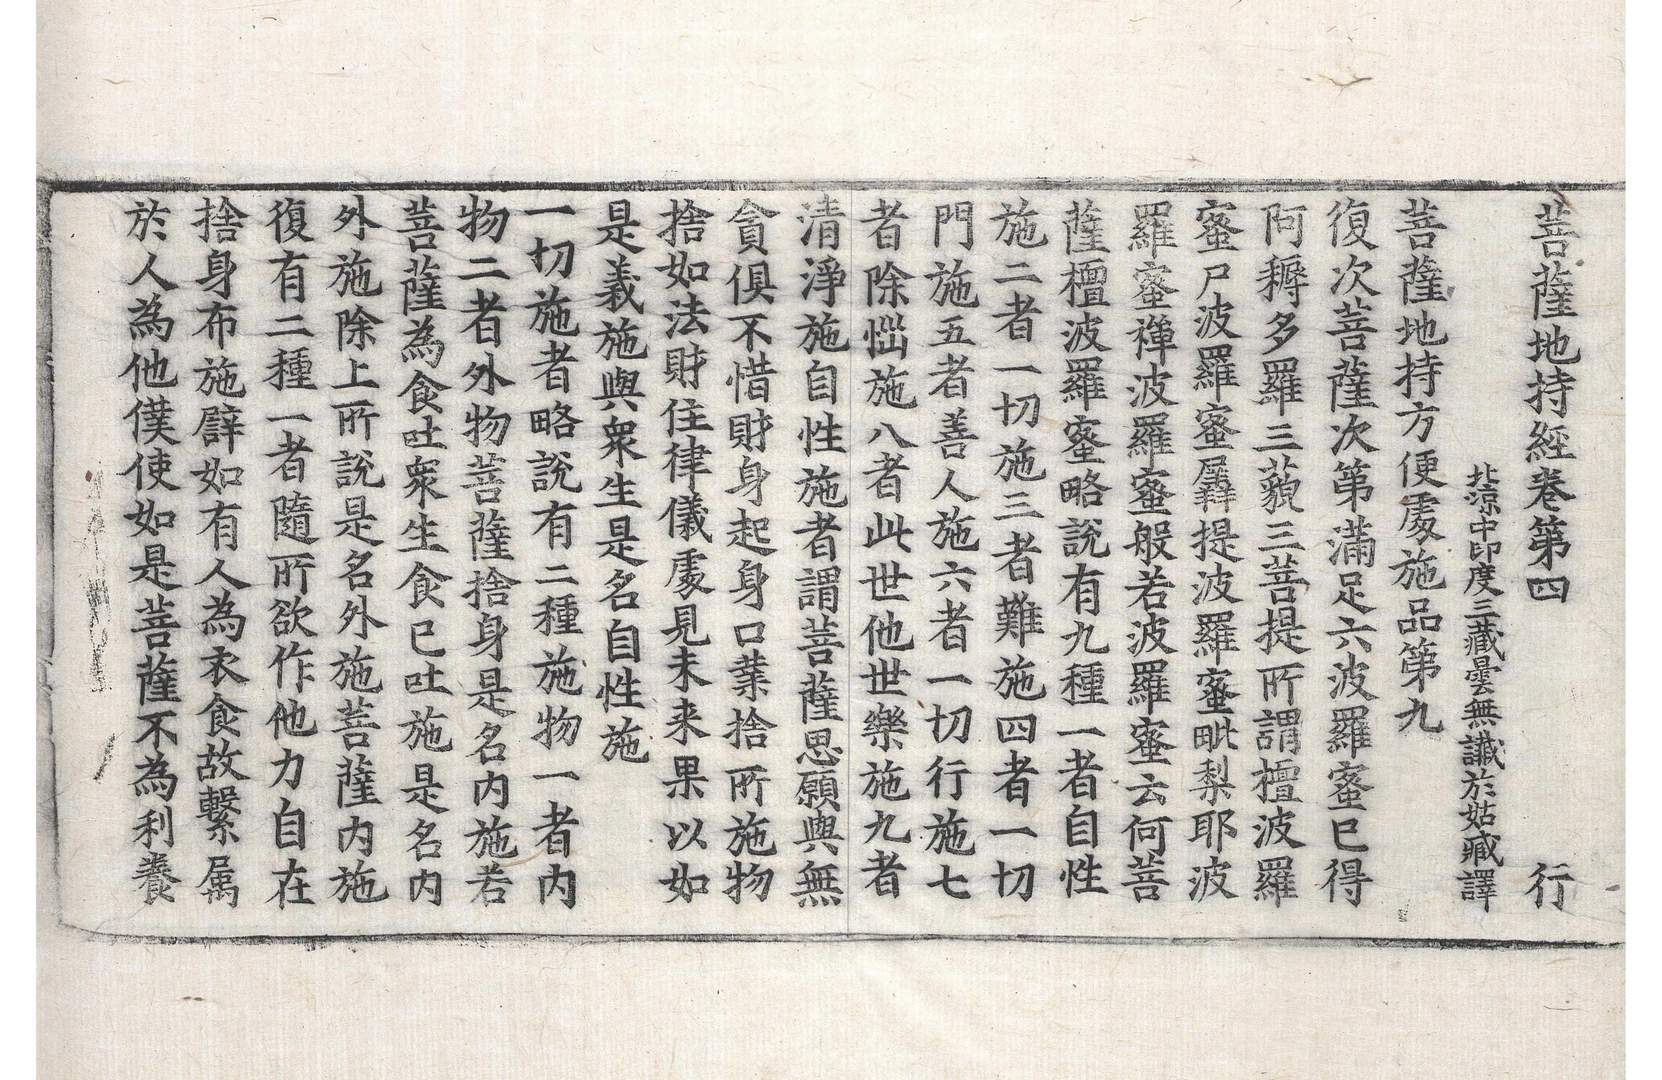 菩薩地持經卷第四　行
北涼中印度三藏曇無讖於姑臧譯
菩薩地持方便處施品第九
復次菩薩次第滿足六波羅蜜已得
阿耨多羅三藐三菩提所謂檀波羅
蜜尸波羅蜜羼提波羅蜜毗梨耶波
羅蜜禪波羅蜜般若波羅蜜云何菩
薩檀波羅蜜略說有九種一者自性
施二者一切施三者難施四者一切
門施五者善人施六者一切行施七
者除惱施八者此世他世樂施九者
清淨施自性施者謂菩薩思願與無
貪俱不惜財身起身口業捨所施物
捨如法財住律儀處見未来果以如
是義施與衆生是名自性施
一切施者略說有二種施物一者內
物二者外物菩薩捨身是名內施若
菩薩為食吐衆生食已吐施是名內
外施除上所說是名外施菩薩內施
復有二種一者隨所欲作他力自在
捨身布施譬如有人為衣食故繫属
於人為他僕使如是菩薩不為利養